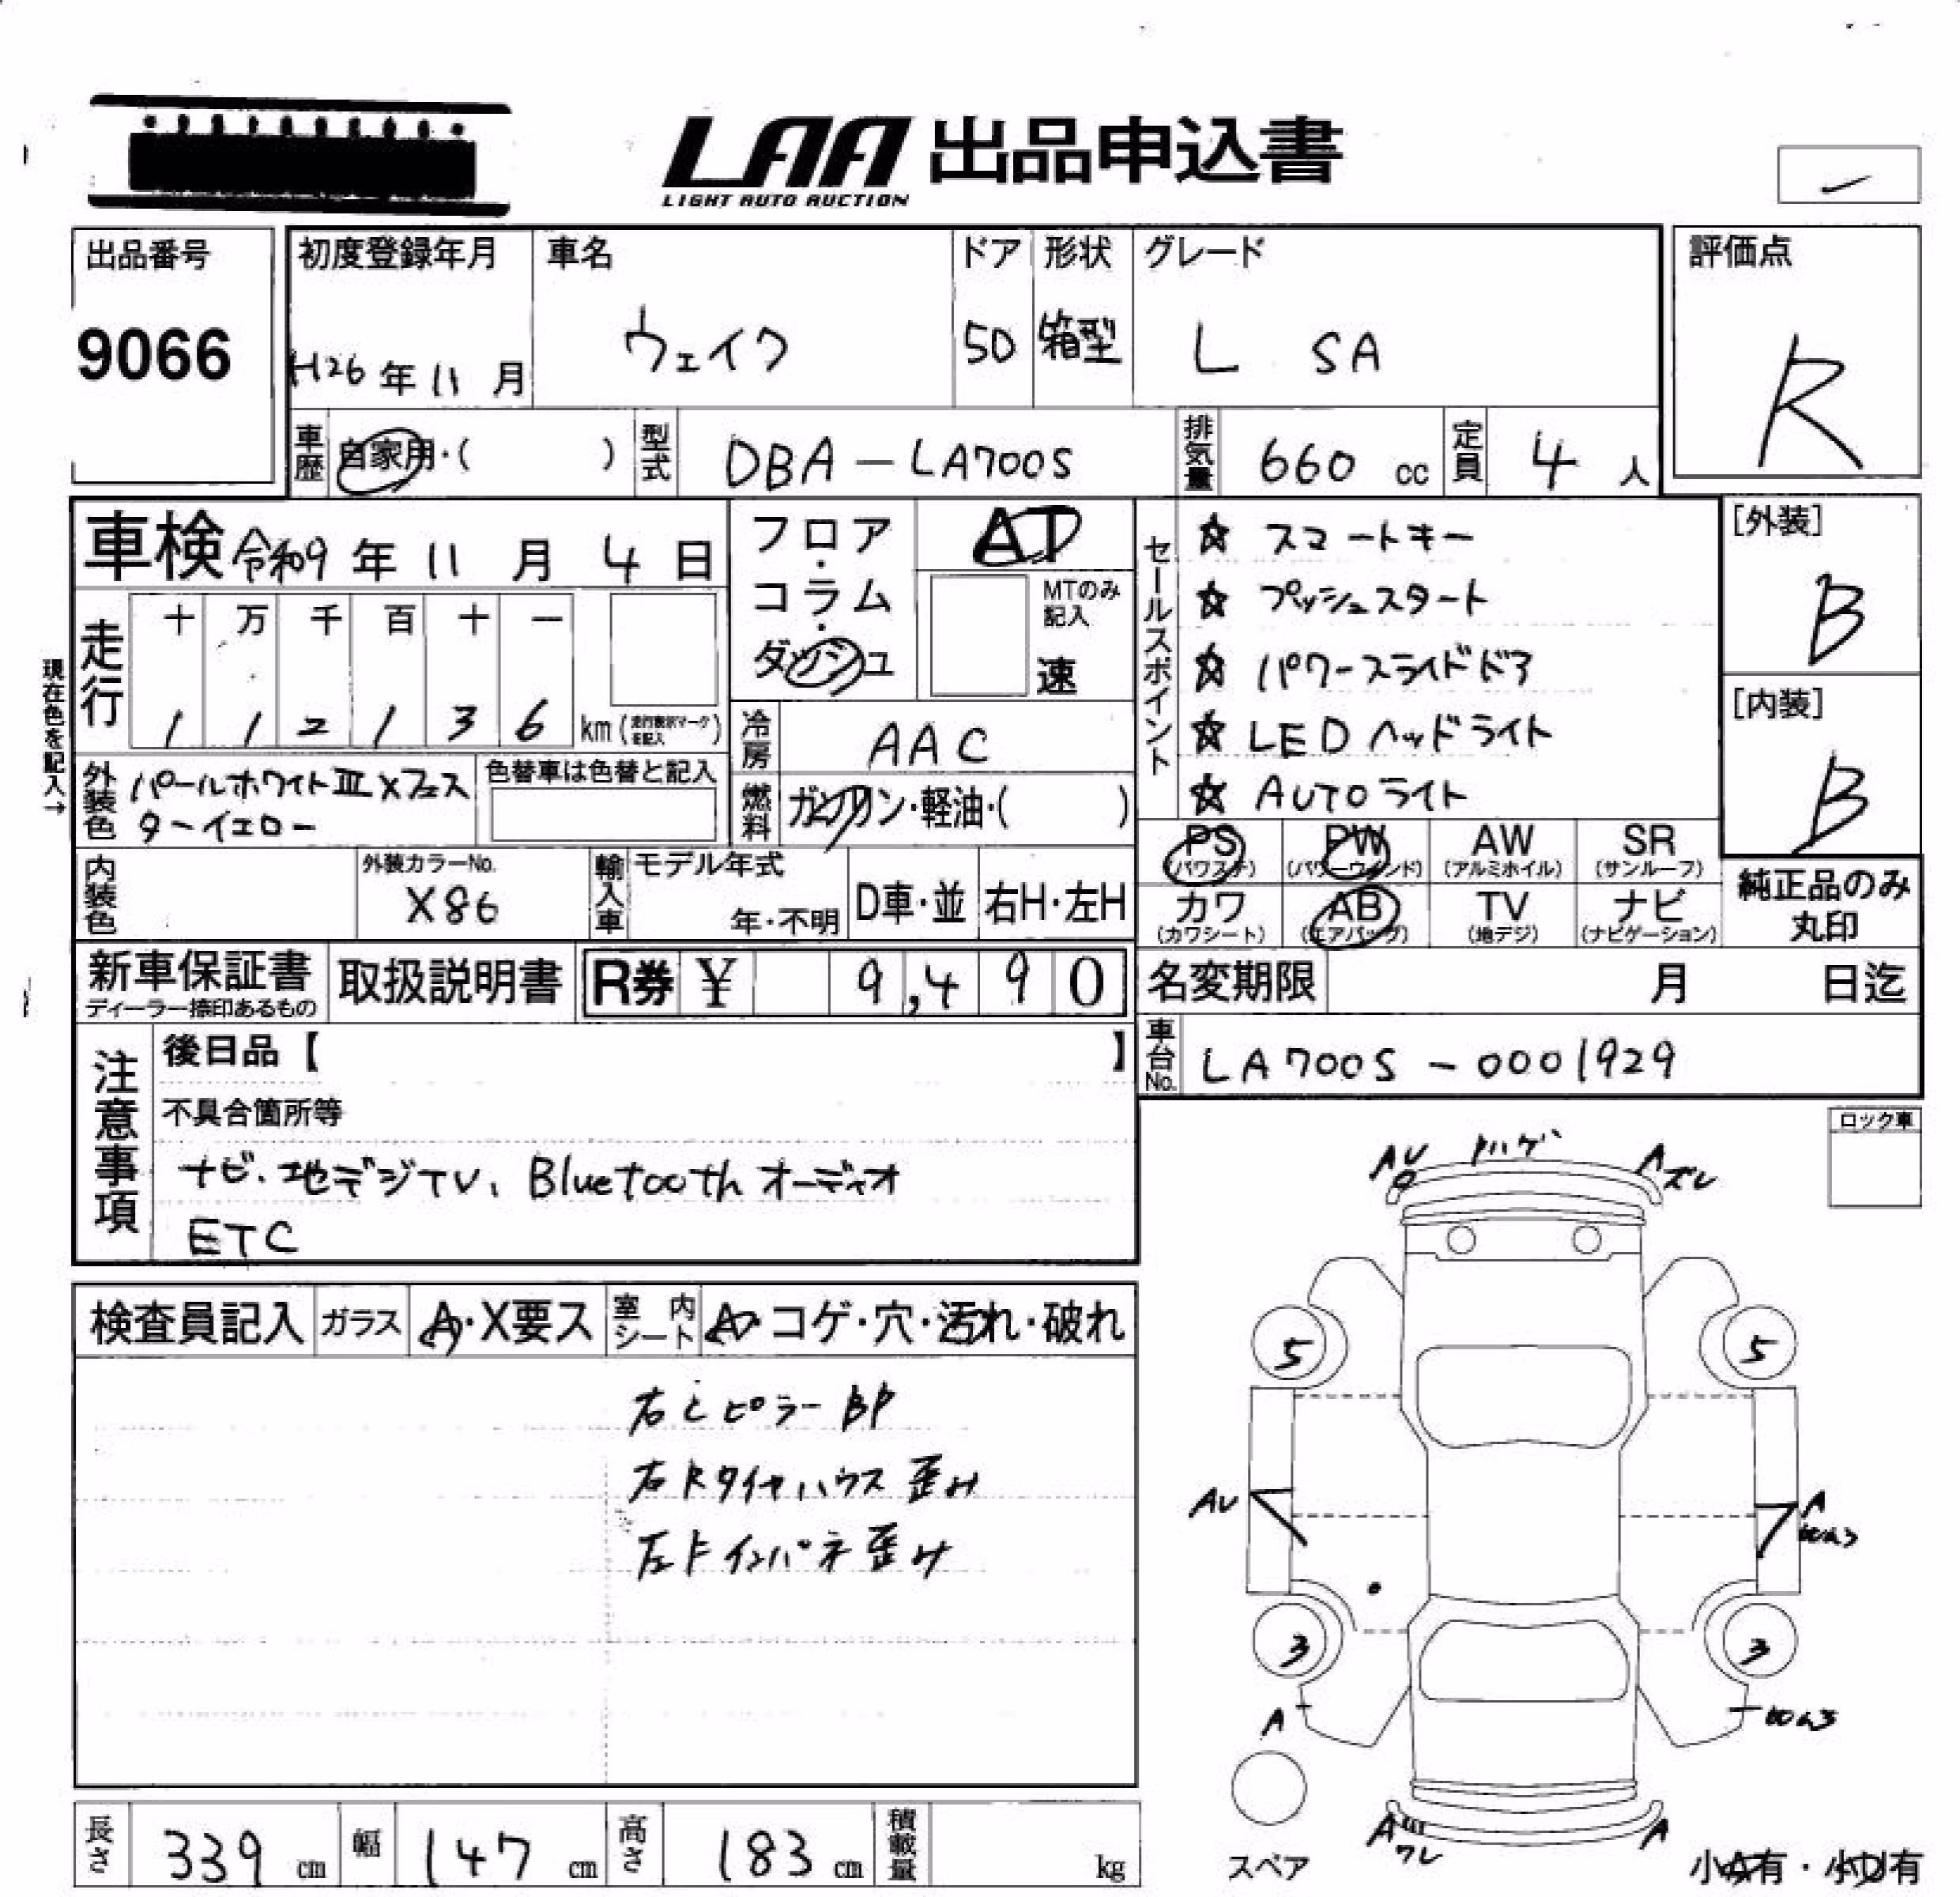 LAA 出品申込書
LIGHT AUTO AUCTION
出品番号
9066
初度登録年月
H26年11月
車名
ウェイク
ドア
5D
形状
箱型
グレード
L SA
評価点
R
車歴
自家用・( )
型式
DBA-LA700S
排気量
660 cc
定員
4 人
車検 令和9年11月4日
フロア・コラム・ダッシュ
AT
MTのみ記入
速
セールスポイント
☆ スマートキー
☆ プッシュスタート
☆ パワースライドドア
☆ LEDヘッドライト
☆ AUTOライト
[外装]
B
[内装]
B
現在色を記入→
走行
十 万 千 百 十 一
1 1 2 1 3 6 km (走行表示マークを記入)
冷房
AAC
外装色
パールホワイトⅢ×フェス
ターイエロー
色替車は色替と記入
燃料
ガソリン・軽油・( )
PS (パワステ)
PW (パワーウインド)
AW (アルミホイル)
SR (サンルーフ)
カワ (カワシート)
AB (エアバッグ)
TV (地デジ)
ナビ (ナビゲーション)
純正品のみ
丸印
内装色
外装カラーNo.
X86
輸入車
モデル年式
年・不明
D車・並
右H・左H
新車保証書
ディーラー捺印あるもの
取扱説明書
R券 ¥ 9,490
名変期限 月 日迄
車台No.
LA700S-0001929
注意事項
後日品【 】
不具合箇所等
ナビ、地デジTV、Bluetoothオーディオ
ETC
ロック車
検査員記入
ガラス
A・X要ス
室内シート
A・コゲ・穴・汚れ・破れ
右Cピラー BP
右Rタイヤハウス 歪み
左Fインパネ歪み
AU
ハゲ
A
ズレ
5
5
AU
A
3
3
A
A
ワレ
A
スペア
長さ
339 cm
幅
147 cm
高さ
183 cm
積載量
kg
小A有・小U有